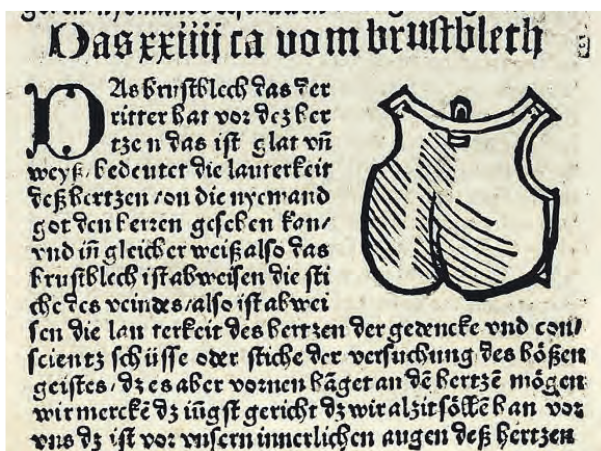 Das xxiiij ca vom brustblech
DAs brustblech das der
ritter hat vor dez her
tze n das ist glat vñ
weyß/ bedeutet die lauterkeit
deß hertzen/on die nyemand
got den herren gesehen kan/
vnd iñ gleicher weiß also das
brustblech ist abweisen die sti
che des veindes/also ist abwei
sen die lau terkeit des hertzen der gedencke vnd con/
scientz schüsse oder stiche der versuchung des bößen
geistes/ dz es aber vornen hãget an dẽ hertzẽ mögen
wir merckẽ dz iüngst gericht dz wir alzit söllẽ han vor
vns dz ist vor vnsern innerlichen augen deß hertzen